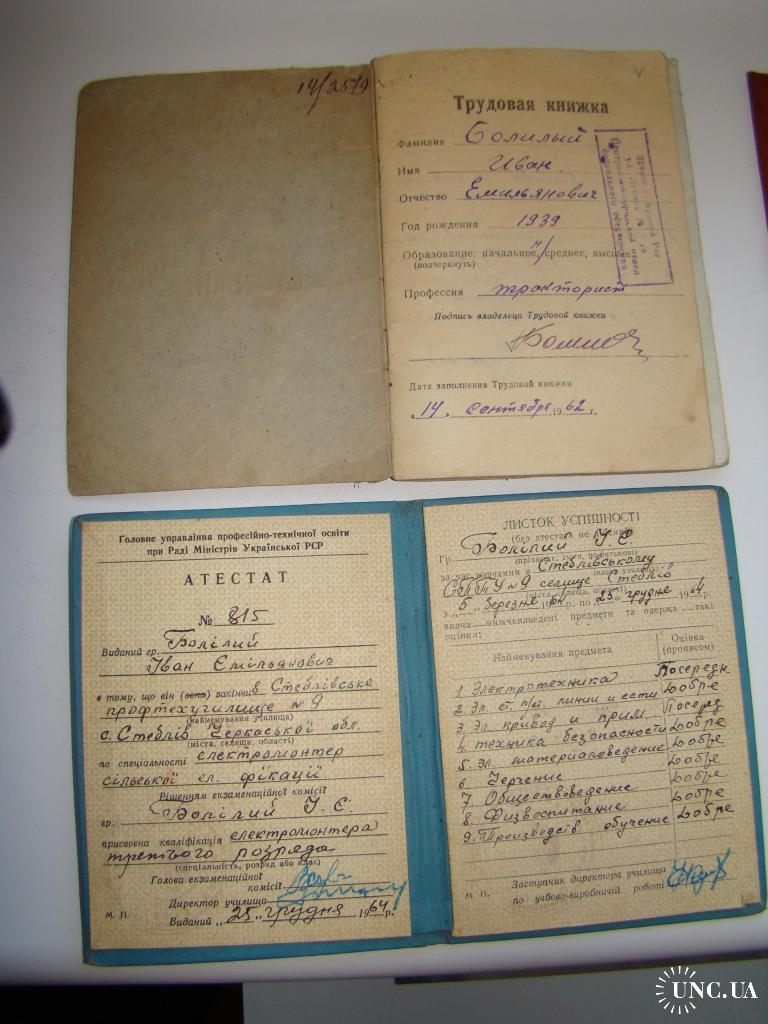 14/2579
Трудовая книжка
Фамилия Болилый
Имя Иван
Отчество Емильянович
Год рождения 1939
Образование: начальное, н/среднее, высшее
(подчеркнуть)
Профессия тракторист
Подпись владельца Трудовой книжки
Дата заполнения Трудовой книжки
"14" сентября 1962 г.
Головне управління професійно-технічної освіти
при Раді Міністрів Української РСР
АТЕСТАТ
№ 815
Виданий гр. Болілий
Іван Емільянович
в тому, що він (вона) закінчив Стеблівське
профтехучилище №9
(найменування училища)
с. Стеблів Черкаської обл.
(міста, селища, області)
по спеціальності електромонтер
сільської ел. фікації
Рішенням екзаменаційної комісії
гр. Болілий І. Є.
присвоєна кваліфікація електромонтера
третього розряда
(спеціальність, розряд або клас)
Голова екзаменаційної
комісії
Директор училища
М. П.
Виданий „25" грудня 1964 р.
ЛИСТОК УСПІШНОСТІ
(без атестата не дійсний)
Гр. Болілий І. Є.
(прізвище, ім'я, по батькові)
за час навчання в Стеблівському
СПТУ №9 селище Стеблів
(міста, селища, області)
з „5" березня 1964 р. по „25" грудня 1964 р.
вивчав нижчезаведені предмети та одержав такі
оцінки:
Найменування предмета
Оцінка
(прописом)
1. Электротехника Посередн
2. Эл. ст. п/ст. линии и сети Добре
3. Эл. привод и прим Посеред
4. техника безопасности Добре
5. Эл. материаловедение Добре
6. Черчение Добре
7. Обществоведение Добре
8. Физвоспитание Добре
9. Производств обучение Добре
М П.
Заступник директора училища
по учбово-виробничій роботі
UNC.UA